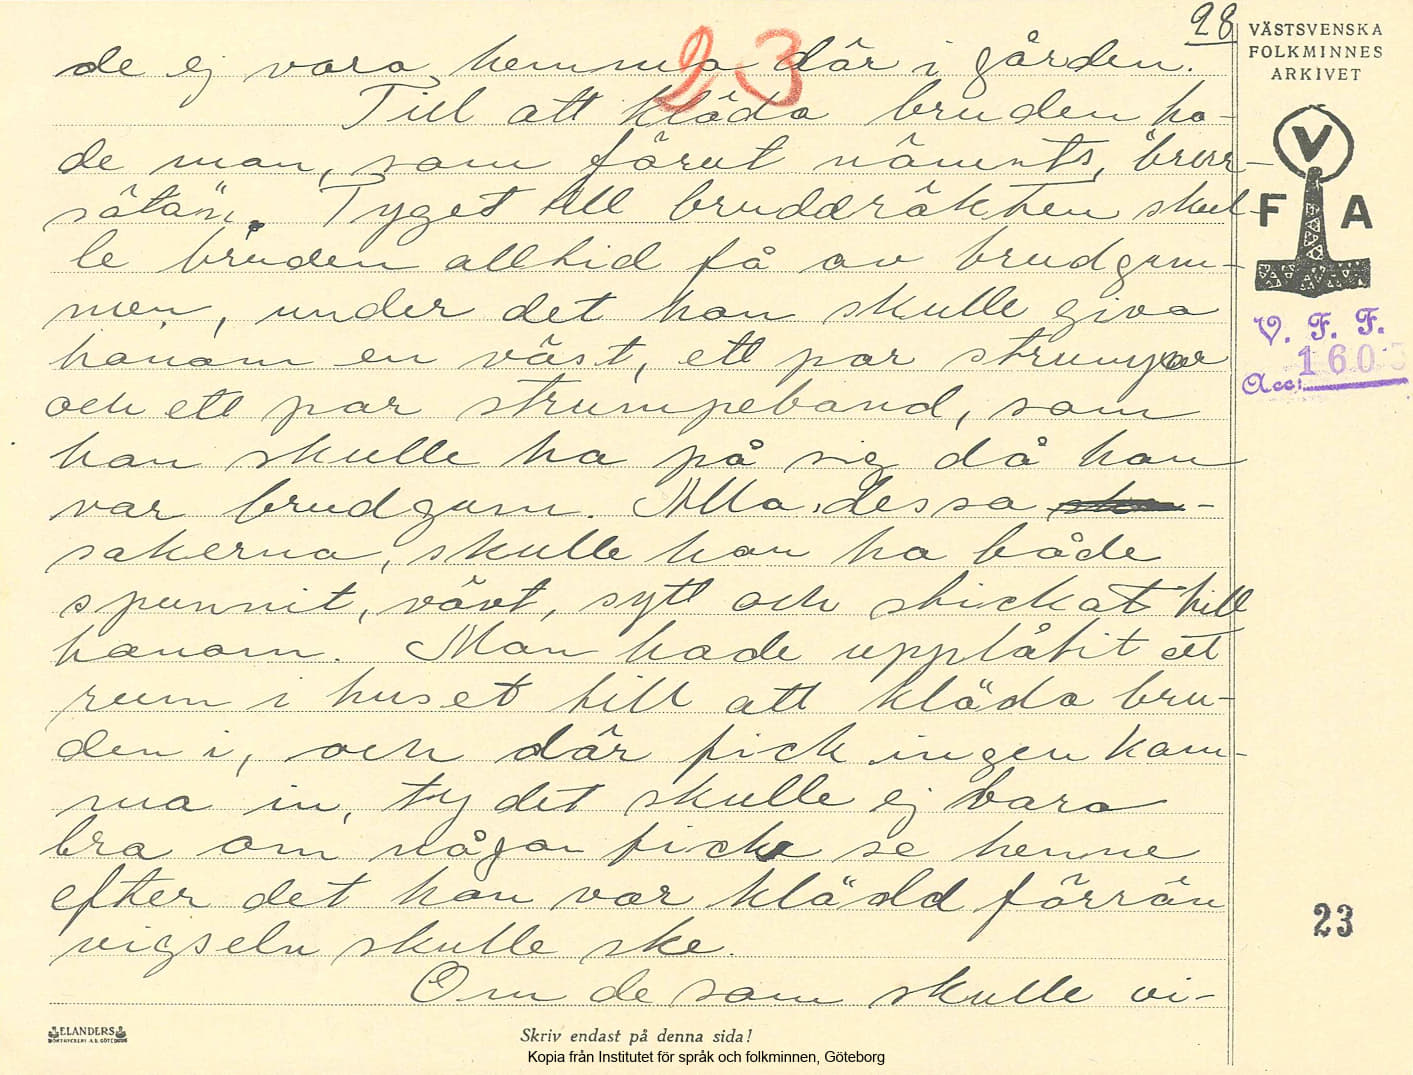 28
VÄSTSVENSKA
FOLKMINNES
ARKIVET
23
de ej vara hemma där i gården.
Till att kläda bruden ha-
de man, som förut nämnts, "brur-
sätan". Tyget till bruddräkten skul-
le bruden alltid få av brudgum-
men, under det hon skulle giva
honom en väst, ett par strumpor
och ett par strumpeband, som
han skulle ha på sig då han
var brudgum. Alla dessa
sakerna, skulle hon ha både
spunnit, vävt, sytt och stickat till
honom. Man hade upplåtit ett
rum i huset till att kläda bru-
den i, och där fick ingen kom-
ma in, ty det skulle ej vara
bra om någon fick se henne
efter det hon var klädd förrän
vigseln skulle ske.
Om de som skulle vi-
V
F A
V. F. F.
Acc: 1603
23
ELANDERS
Skriv endast på denna sida!
Kopia från Institutet för språk och folkminnen, Göteborg